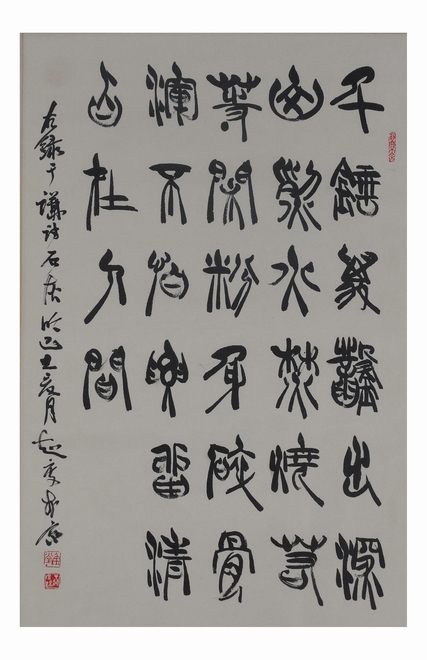 千錘萬鑿出深
山烈火焚燒若
等閑粉身碎骨
渾不怕要留清
白在人間
右錄于謙詩石灰吟 夏月